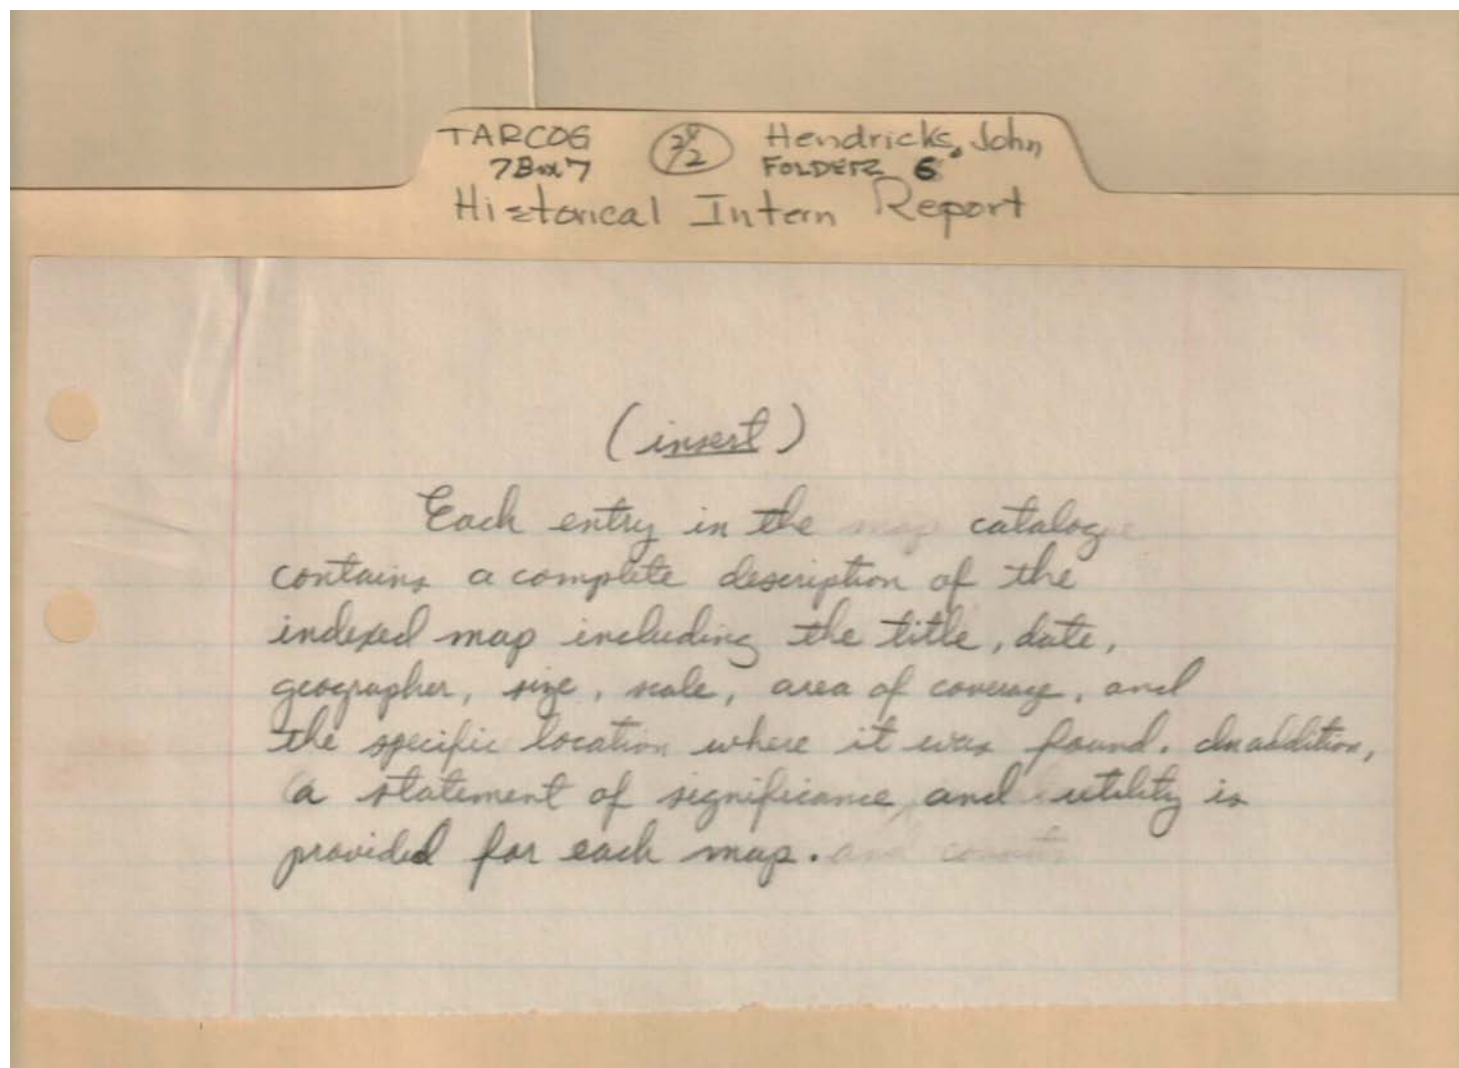 TARCOG 2 of 2 Hendricks, John
7Box7 FOLDER 6
Historical Intern Report
(insert)
Each entry in the map catalogue
contains a complete description of the
indexed map including the title, date,
geographer, size, scale, area of coverage, and
the specific location where it was found. In addition,
a statement of significance and utility is
provided for each map. and